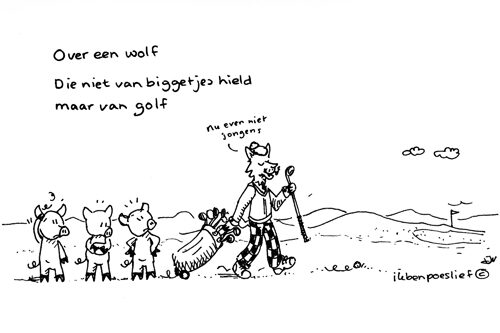 Over een wolf
Die niet van biggetjes hield
maar van golf
nu even niet
jongens
ikbenpoeslief ©